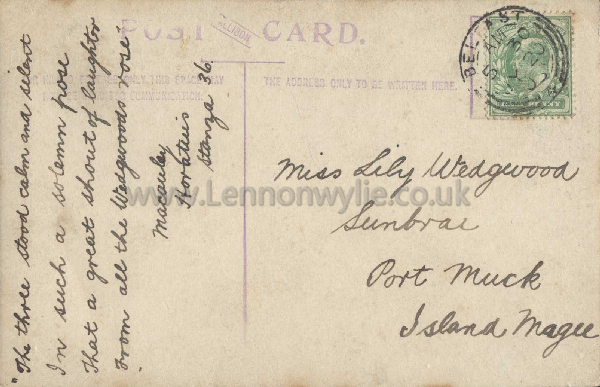 POST CARD.
THE ADDRESS ONLY TO BE WRITTEN HERE.
BELFAST
"The three stood calm and silent
In such a solemn pose
That a great shout of laughter
From all the Wedgwoods rose".
Macauley
Horatius
Stanza 36.
Miss Lily Wedgwood
Sunbrae
Port Muck
Island Magee
www.Lennonwylie.co.uk